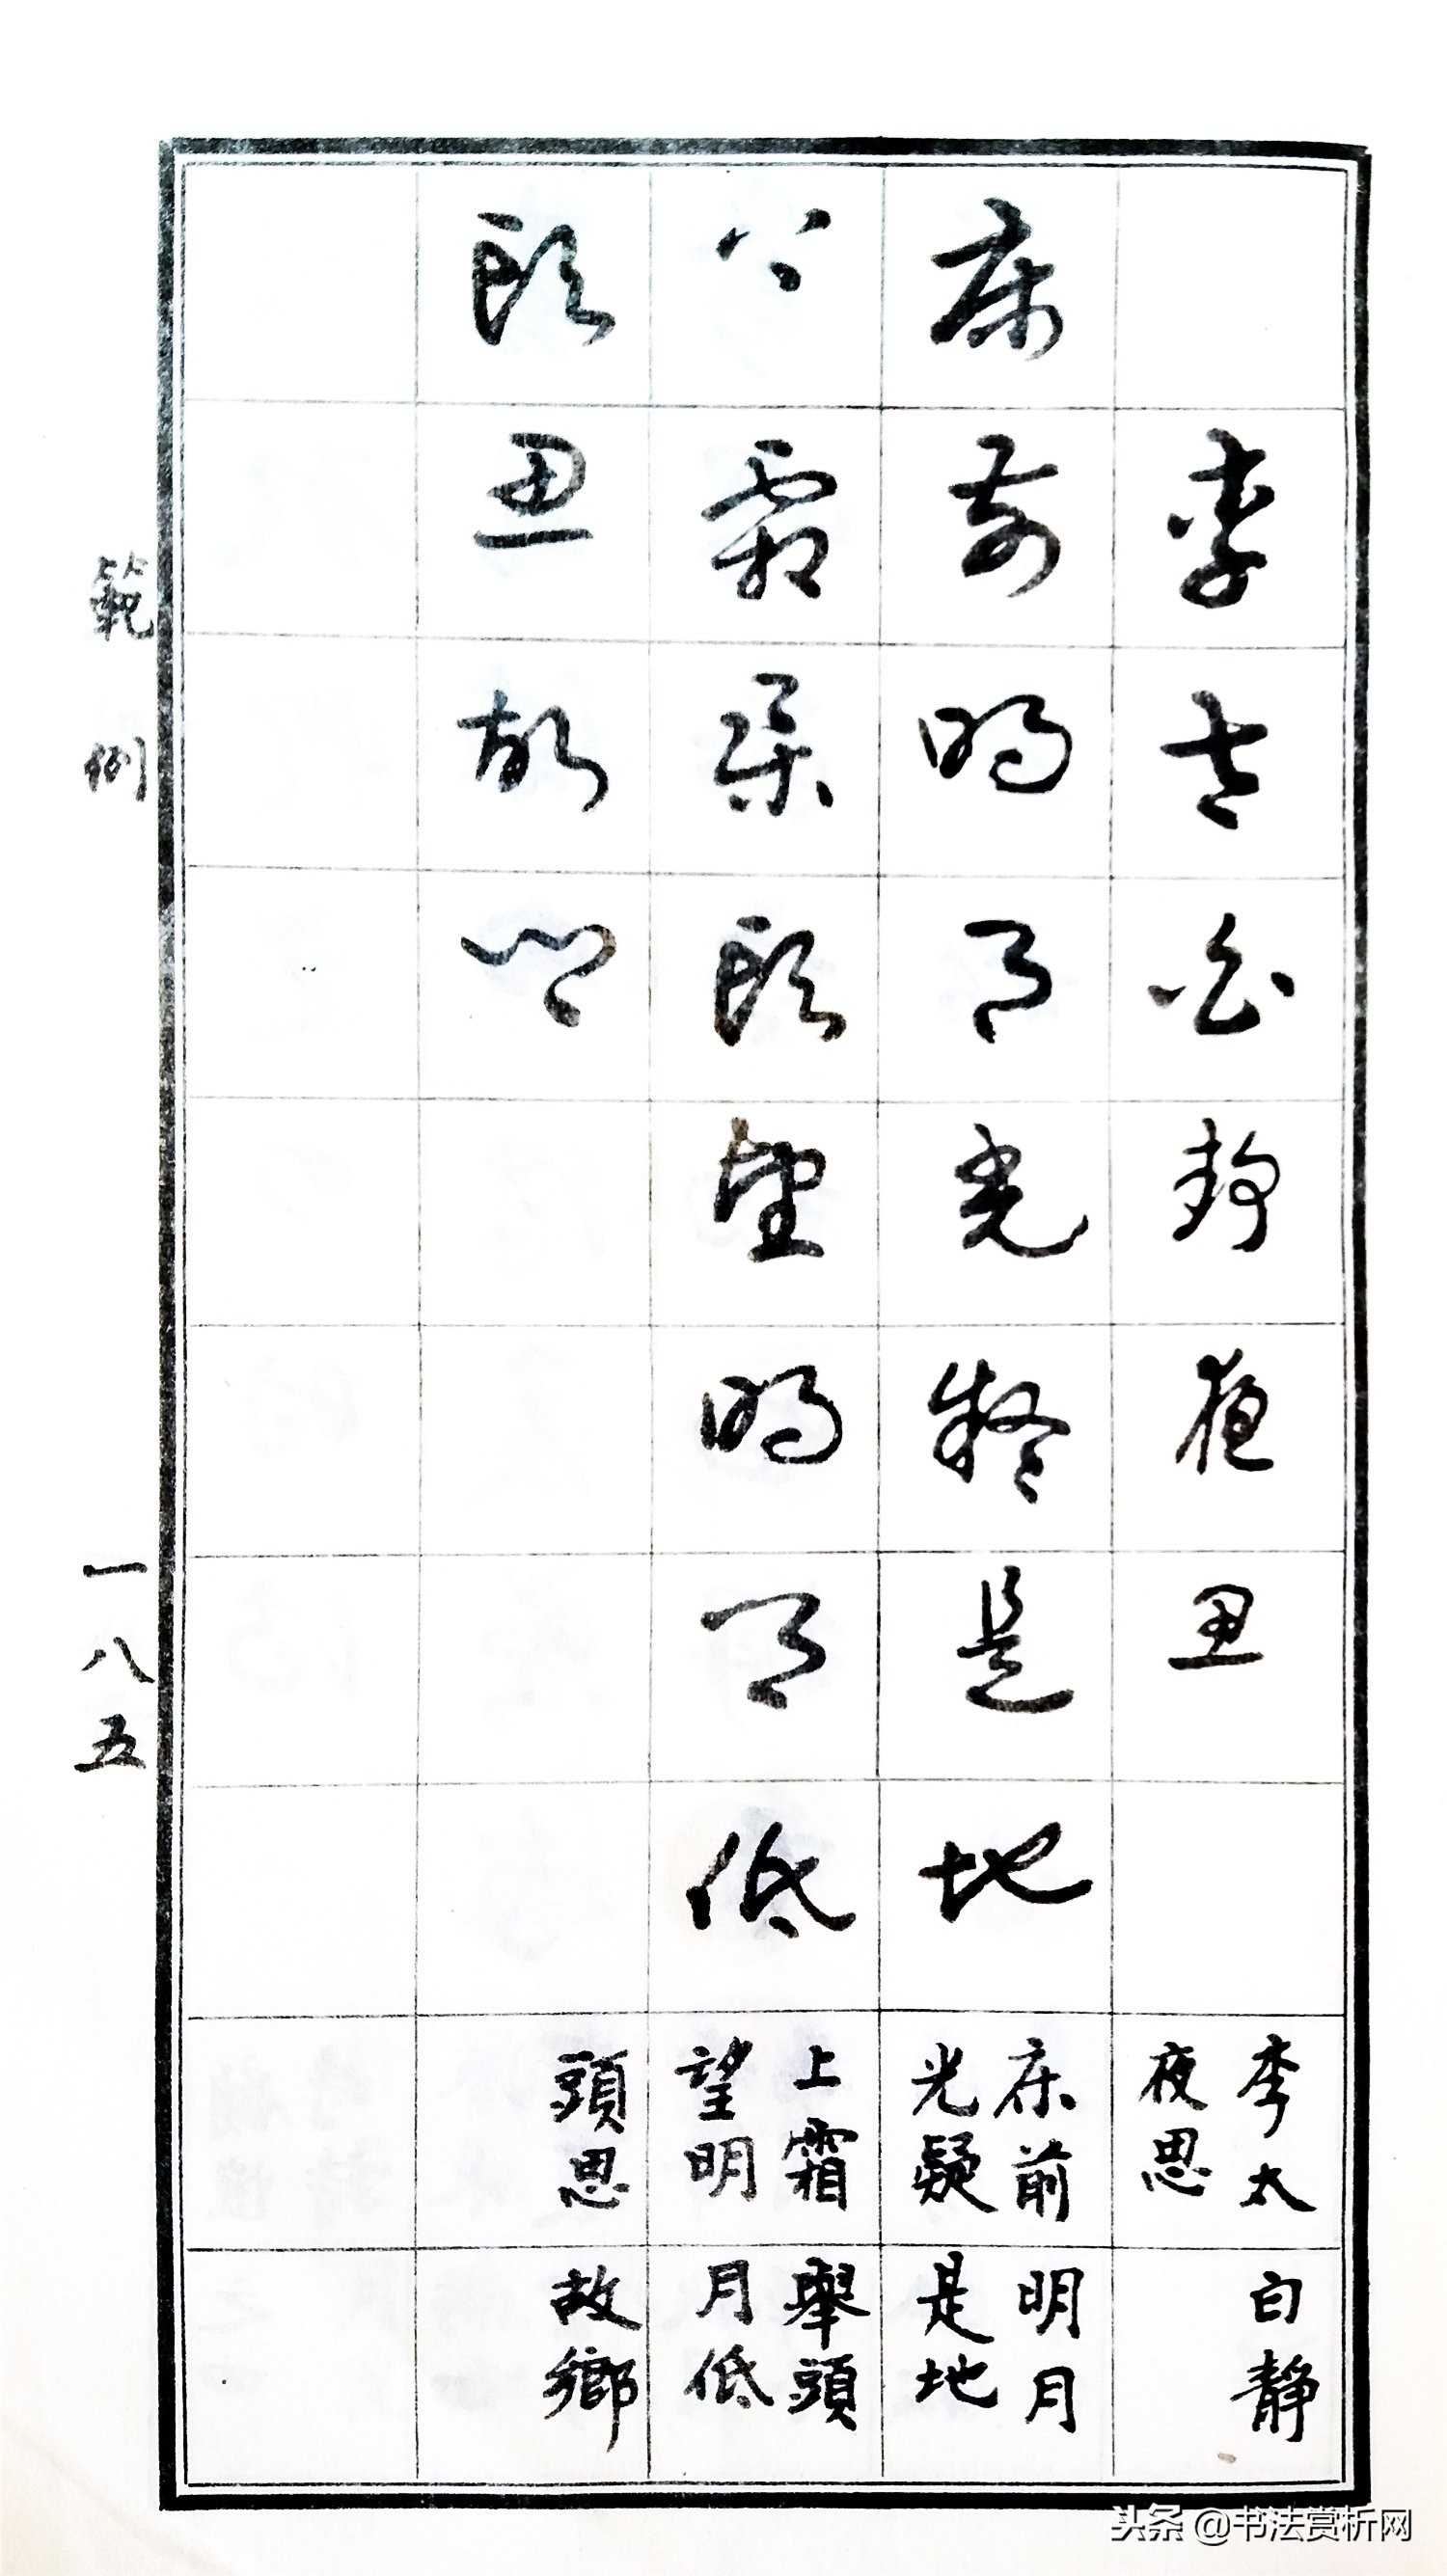 李太白静夜思
床前明月光疑是地
上霜舉頭望明月低
頭思故鄉
李太白靜
夜思
床前明月
光疑是地
上霜舉頭
望明月低
頭思故鄉
範例
一八五
头条 @书法赏析网